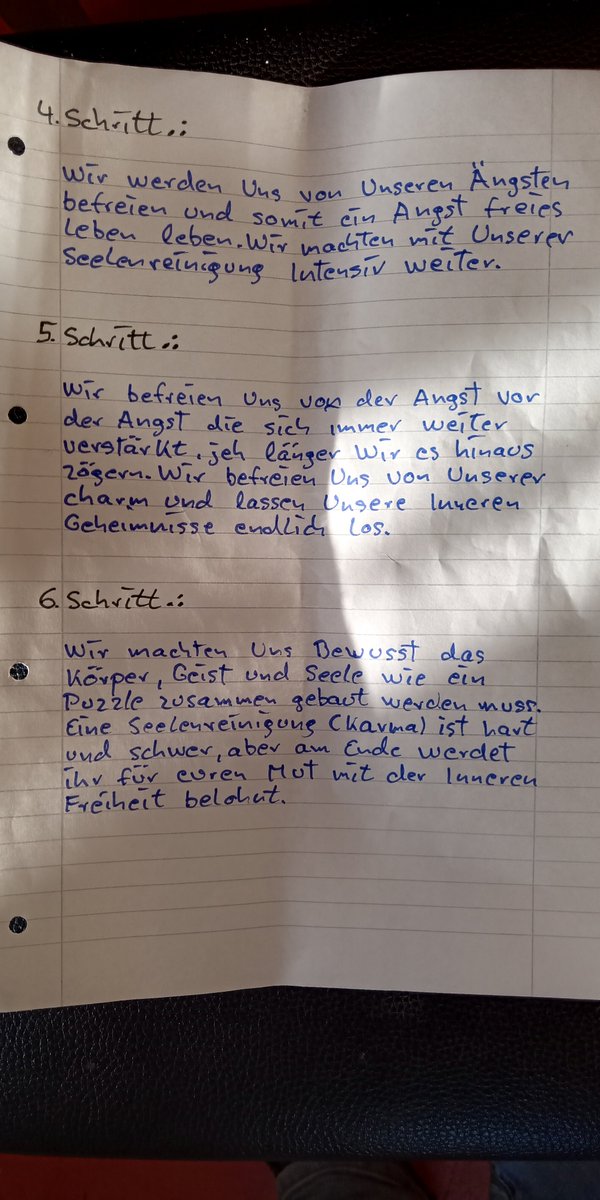 4. Schritt.:
Wir werden Uns von Unseren Ängsten
befreien und somit ein Angst freies
Leben leben. Wir machten mit Unserer
Seelenreinigung Intensiv weiter.
5. Schritt.:
Wir befreien Uns von der Angst vor
der Angst die sich immer weiter
verstärkt, jeh länger Wir es hinaus
zögern. Wir befreien Uns von Unserer
charm und lassen Unsere Inneren
Geheimnisse endlich los.
6. Schritt.:
Wir machten Uns Bewusst das
Körper, Geist und Seele wie ein
Puzzle zusammen gebaut werden muss.
Eine Seelenreinigung (Karma) ist hart
und schwer, aber am Ende werdet
ihr für euren Mut mit der Inneren
Freiheit belohnt.